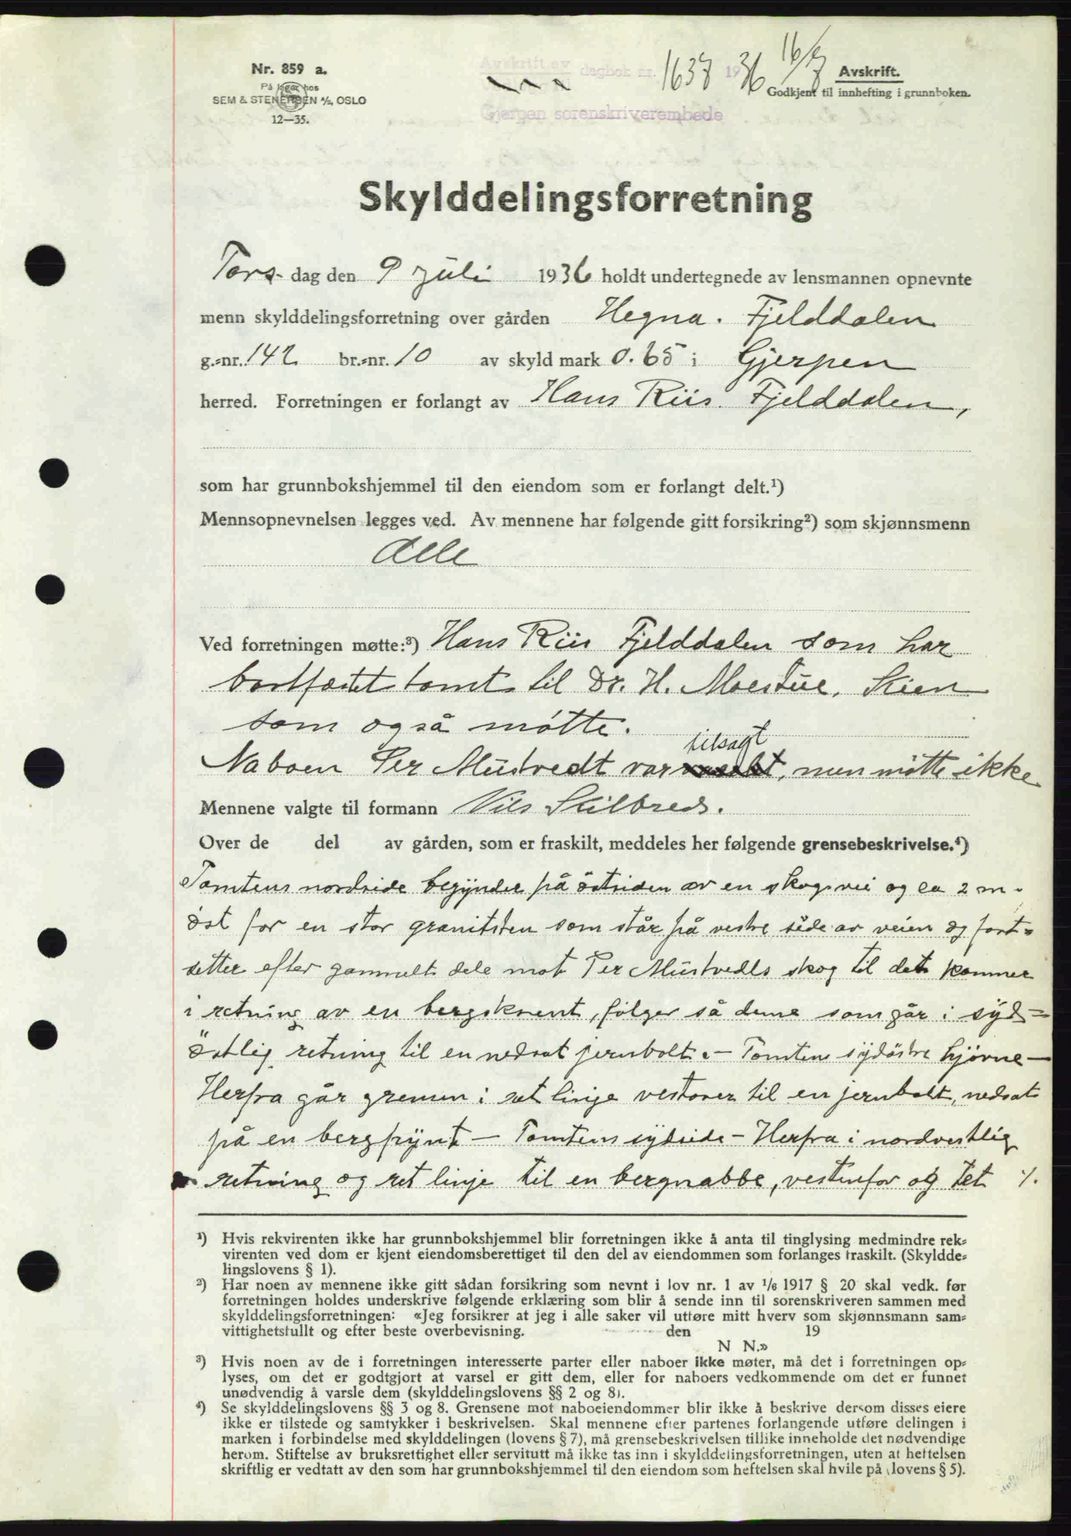 Nr. 859 a.
På lager hos
SEM & STENERSEN A/S, OSLO
12—35.
Avskrift av dagbok nr. 1637 1936 16/7
Gjerpen sorenskriverembede
Avskrift.
Godkjent til innhefting i grunnboken.
Skylddelingsforretning
Tors- dag den 9 juli 1936 holdt undertegnede av lensmannen opnevnte
menn skylddelingsforretning over gården Hegna. Fjelddalen
g.-nr. 142 br.-nr. 10 av skyld mark 0.65 i Gjerpen
herred. Forretningen er forlangt av Hans Riis. Fjelddalen,
som har grunnbokshjemmel til den eiendom som er forlangt delt.¹)
Mennsopnevnelsen legges ved. Av mennene har følgende gitt forsikring²) som skjønnsmenn
Alle
Ved forretningen møtte:³) Hans Riis Fjelddalen som har
bortfæstet tomt til Dr. H. Moestue, Skien
som også møtte.
tilsagt
Naboen Per Mustvedt var, men møtte ikke
Mennene valgte til formann Nils Skilbred.
Over de del av gården, som er fraskilt, meddeles her følgende grensebeskrivelse.⁴)
Tomtens nordside begynder på östsiden av en skogsvei og ca 2 m.
öst for en stor granitsten som står på vestre side av veien og fort-
setter efter gammelt dele mot Per Mustvedts skog til det kommer
i retning av en bergskrent, følger så denne som går i syd-
östlig retning til en nedsat jernbolt. — Tomtens sydöstre hjørne —
Herfra går grensen i ret linje vestover til en jernbolt, nedsat
på en bergpynt — Tomtens sydside — Herfra i nordvestlig
retning og ret linje til en bergnabbe, vestenfor og tet ./.
¹) Hvis rekvirenten ikke har grunnbokshjemmel blir forretningen ikke å anta til tinglysing medmindre rek-
virenten ved dom er kjent eiendomsberettiget til den del av eiendommen som forlanges fraskilt. (Skyldde-
lingslovens § 1).
²) Har noen av mennene ikke gitt sådan forsikring som nevnt i lov nr. 1 av 1/6 1917 § 20 skal vedk. før
forretningen holdes underskrive følgende erklæring som blir å sende inn til sorenskriveren sammen med
skylddelingsforretningen: «Jeg forsikrer at jeg i alle saker vil utføre mitt hverv som skjønnsmann sam-
vittighetsfullt og efter beste overbevisning. den 19
N N.»
³) Hvis noen av de i forretningen interesserte parter eller naboer ikke møter, må det i forretningen op-
lyses, om det er godtgjort at varsel er gitt dem, eller for naboers vedkommende om det er funnet
unødvendig å varsle dem (skylddelingslovens §§ 2 og 8).
⁴) Se skylddelingslovens §§ 3 og 8. Grensene mot naboeiendommer blir ikke å beskrive dersom disses eiere
ikke er tilstede og samtykker i beskrivelsen. Skal mennene efter partenes forlangende utføre delingen i
marken i forbindelse med skylddelingen (lovens § 7), må grensebeskrivelsen tillike inneholde det nødvendige
herom. Stiftelse av bruksrettighet eller servitutt må ikke tas inn i skylddelingsforretningen, uten at heftelsen
skriftlig er vedtatt av den som har grunnbokshjemmel til den eiendom som heftelsen skal hvile på (lovens § 5).